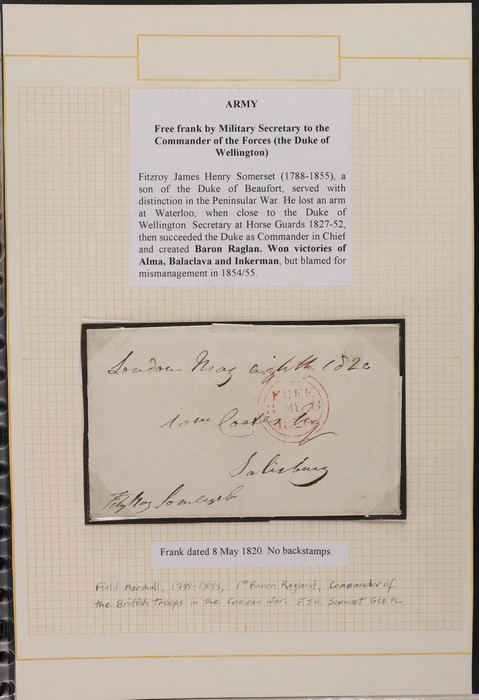 ARMY
Free frank by Military Secretary to the
Commander of the Forces (the Duke of
Wellington)
Fitzroy James Henry Somerset (1788-1855), a
son of the Duke of Beaufort, served with
distinction in the Peninsular War. He lost an arm
at Waterloo, when close to the Duke of
Wellington. Secretary at Horse Guards 1827-52,
then succeeded the Duke as Commander in Chief
and created Baron Raglan. Won victories of
Alma, Balaclava and Inkerman, but blamed for
mismanagement in 1854/55.
London May eighth 1820
FREE
8 MY 8
Coates Esq
Salisbury
FitzRoy Somerset
Frank dated 8 May 1820. No backstamps.
Field Marshall, 1788-1855, 1st Baron Ragland, Commander of
the British troops in the Crimean War. F.J.H. Somerset